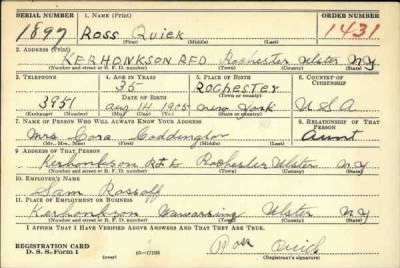 SERIAL NUMBER 1. NAME (Print) ORDER NUMBER
1897 Ross Quick 1431
(First) (Middle) (Last)
2. ADDRESS (Print)
KERHONKSON RFD Rochester Ulster N.Y.
(Number and street or R. F. D. number) (Town) (County) (State)
3. TELEPHONE 4. AGE IN YEARS 5. PLACE OF BIRTH 6. COUNTRY OF CITIZENSHIP
35 Rochester
DATE OF BIRTH (Town or county)
3951 Aug 14 1905 New York U.S.A
(Exchange) (Number) (Mo.) (Day) (Yr.) (State or country)
7. NAME OF PERSON WHO WILL ALWAYS KNOW YOUR ADDRESS 8. RELATIONSHIP OF THAT PERSON
Mrs Cora Coddington Aunt
(Mr., Mrs., Miss) (First) (Middle) (Last)
9. ADDRESS OF THAT PERSON
Kerhonkson Rochester Ulster N.Y.
(Number and street or R. F. D. number) (Town) (County) (State)
10. EMPLOYER'S NAME
Sam Rosoff
11. PLACE OF EMPLOYMENT OR BUSINESS
Kerhonkson Wawarsing Ulster N.Y.
(Number and street or R. F. D. number) (Town) (County) (State)
I AFFIRM THAT I HAVE VERIFIED ABOVE ANSWERS AND THAT THEY ARE TRUE.
REGISTRATION CARD
D. S. S. Form 1 (over) 16—17105 Ross Quick
(Registrant's signature)